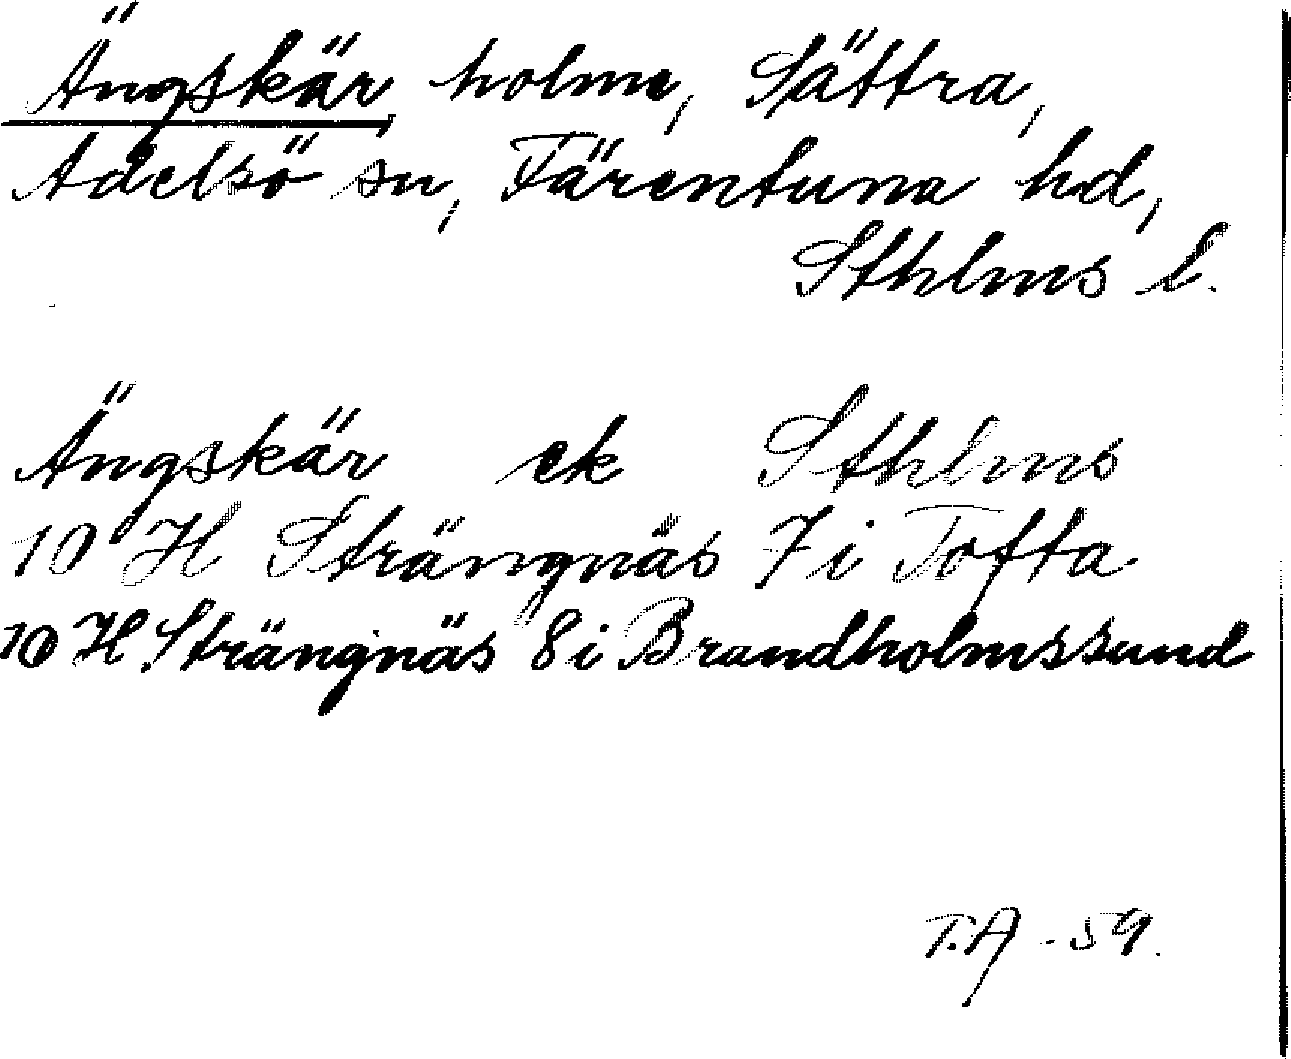 Ängskär, holme, Sättra,
Adelsö sn, Färentuna hd,
Sthlms l.
Ängskär ek Sthlms
10 H Strängnäs 7 i Tofta
10 H Strängnäs 8 i Brandholmssund
T.A -59.